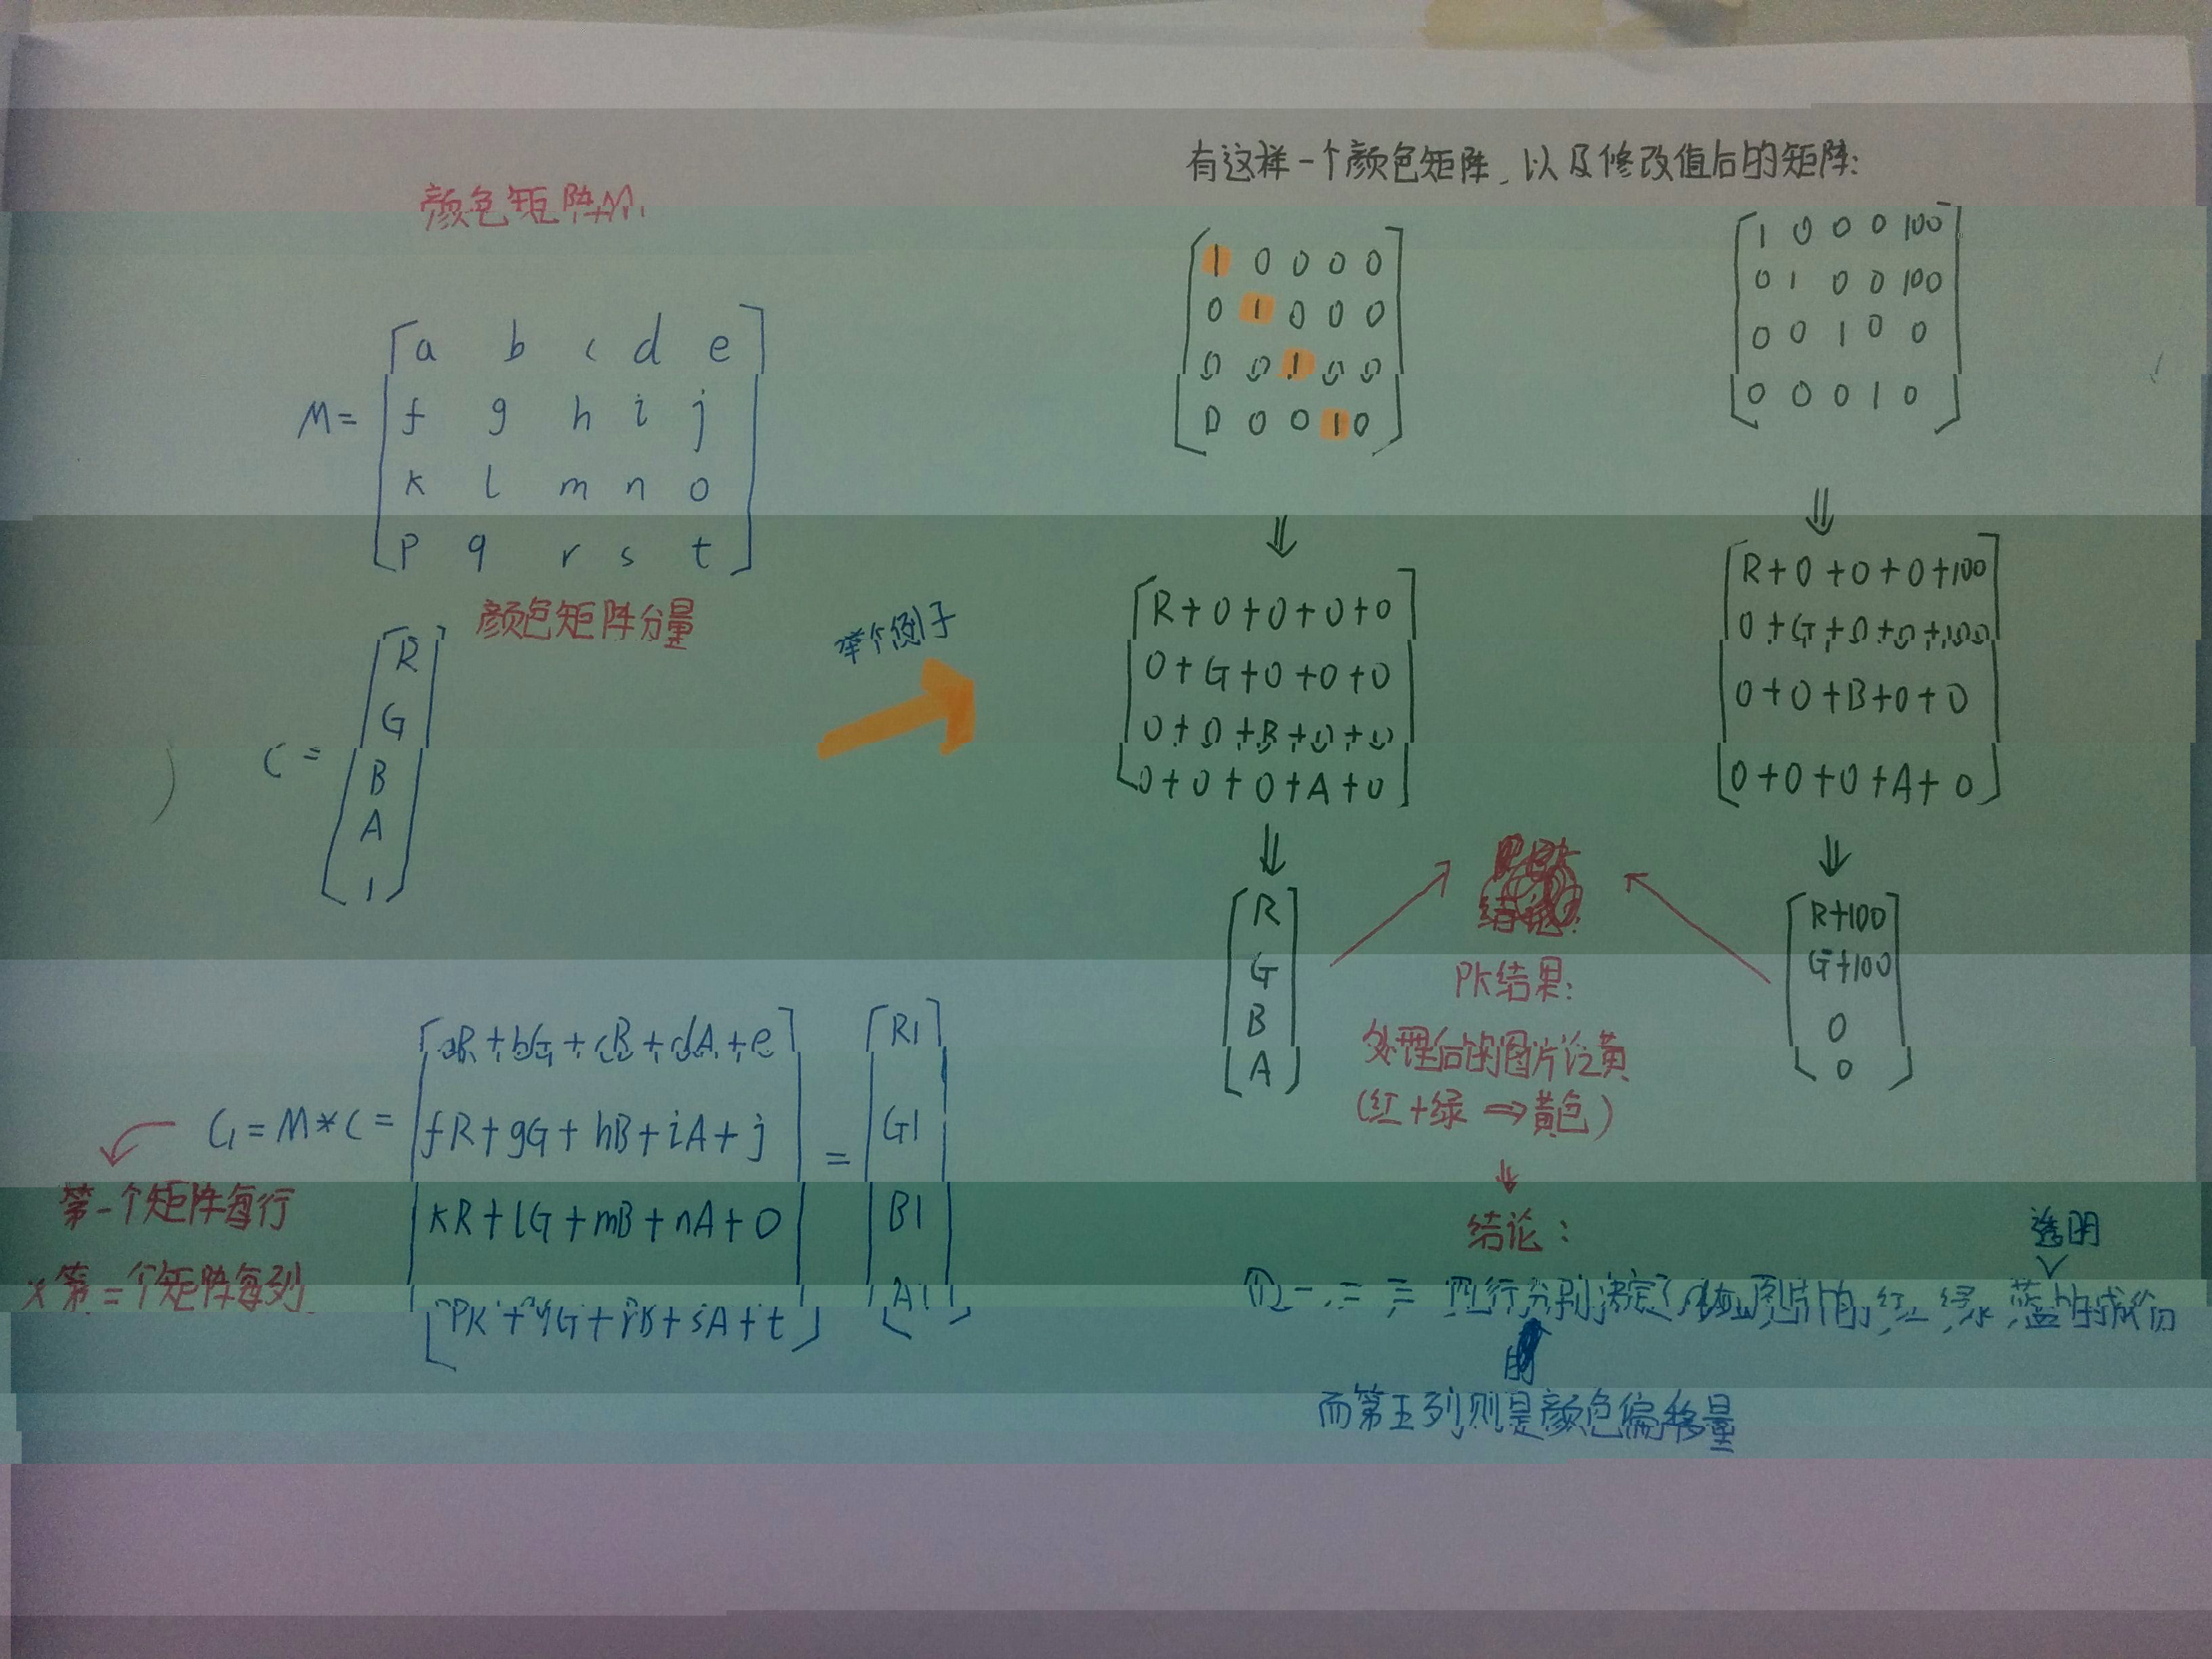 颜色矩阵M
M=
a b c d e
f g h i j
k l m n o
p q r s t
颜色矩阵分量
C=
R
G
B
A
1
C1=M*C=
aR+bG+cB+dA+e
fR+gG+hB+iA+j
kR+lG+mB+nA+o
pR+qG+rB+sA+t
=
R1
G1
B1
A1
第一个矩阵每行
x第二个矩阵每列
举个例子
有这样一个颜色矩阵,以及修改值后的矩阵:
1 0 0 0 0
0 1 0 0 0
0 0 1 0 0
0 0 0 1 0
⇓
R+0+0+0+0
0+G+0+0+0
0+0+B+0+0
0+0+0+A+0
⇓
R
G
B
A
1 0 0 0 100
0 1 0 0 100
0 0 1 0 0
0 0 0 1 0
⇓
R+0+0+0+100
0+G+0+0+100
0+0+B+0+0
0+0+0+A+0
⇓
R+100
G+100
0
0
PK结果:
处理后的图片泛黄
(红+绿⇒黄色)
结论:
透明
一、二 三 四行分别决定了图片的红、绿、蓝的成份
的
而第五列则是颜色偏移量